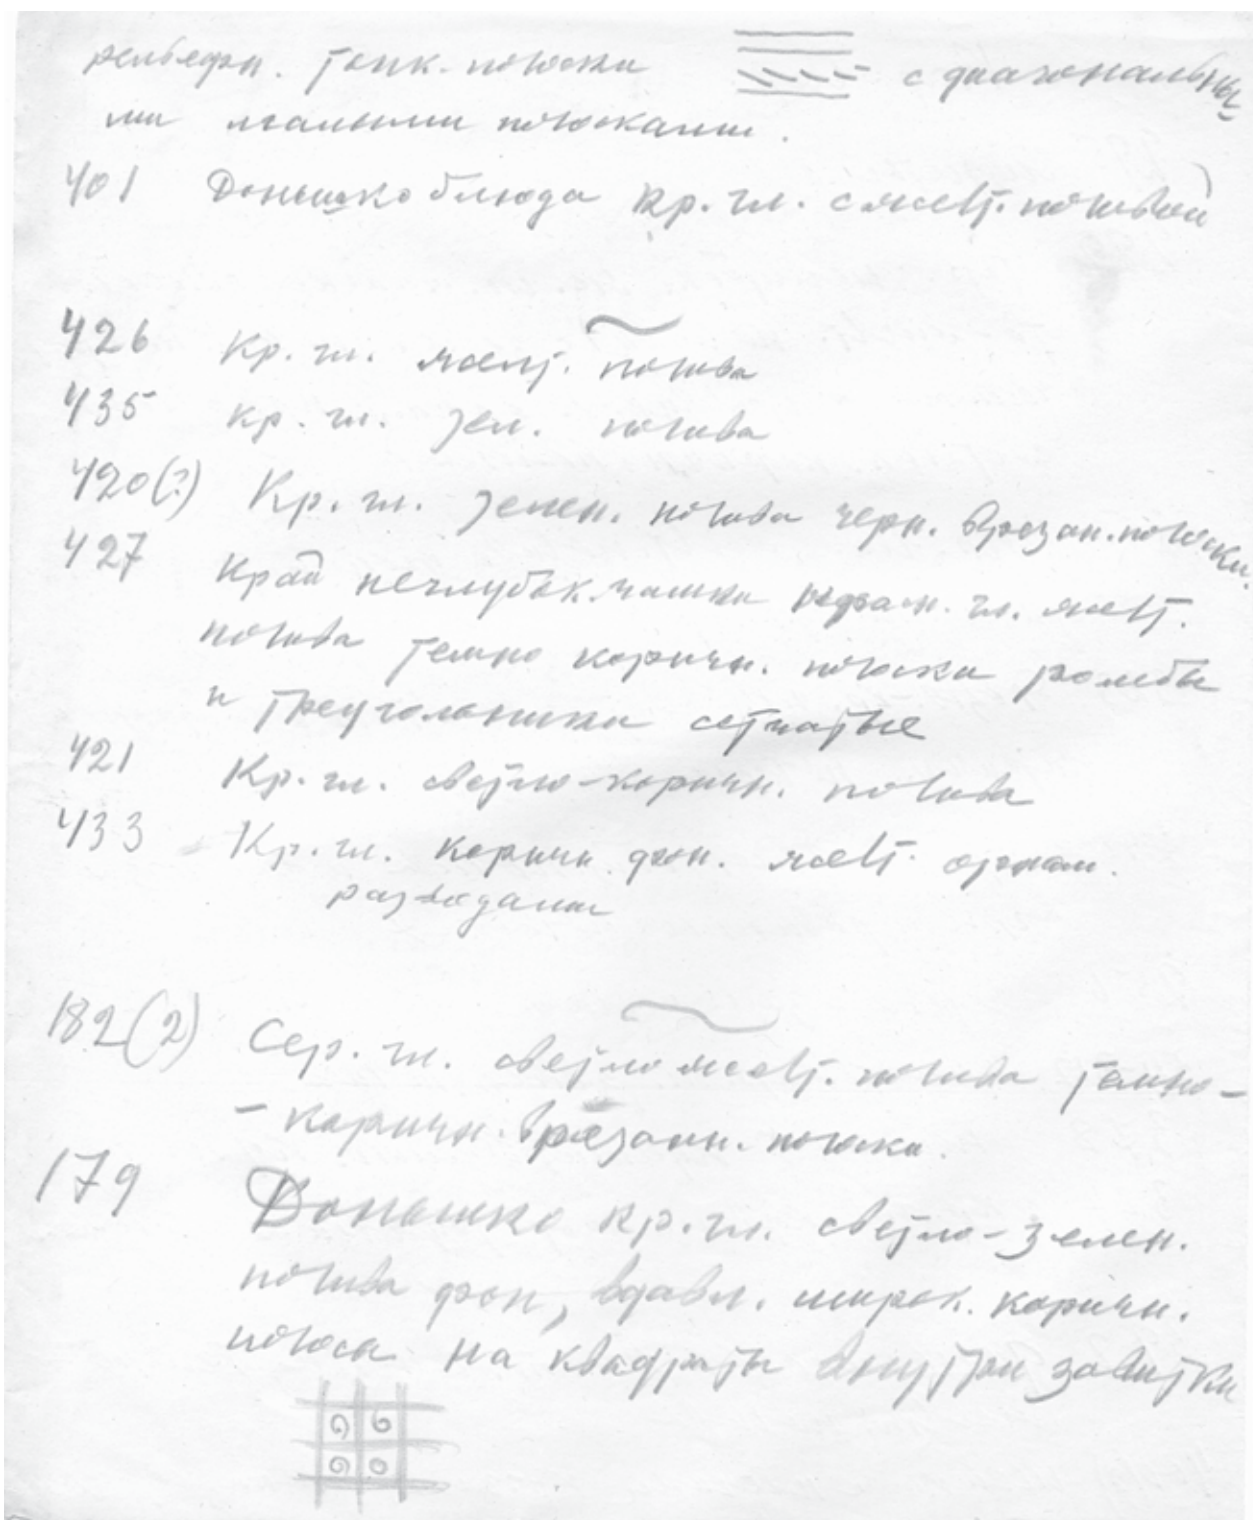 рельефн. тонк. полоски с диагональны
ми малыми полосками.
401 Донышко блюда Кр. гл. с желт. поливой
426 Кр. гл. желт. полива
435 Кр. гл. зел. полива
420(?) Кр. гл. зелен. полива черн. врезан. полоски.
427 Край неглубок. чашки гл. желт.
полива темно коричн. полоски ромбы
и треугольники сетчатые
421 Кр. гл. светло-коричн. полива
433 Кр. гл. коричн. фон. желт. орнам.
разводами
182(2) Сер. гл. светложелт. полива темно-
- коричн. врезанн. полоски.
179 Донышко кр. гл. светло-зелен.
полива фон, вдавл. широк. коричн.
полосы на квадраты внутри завитки